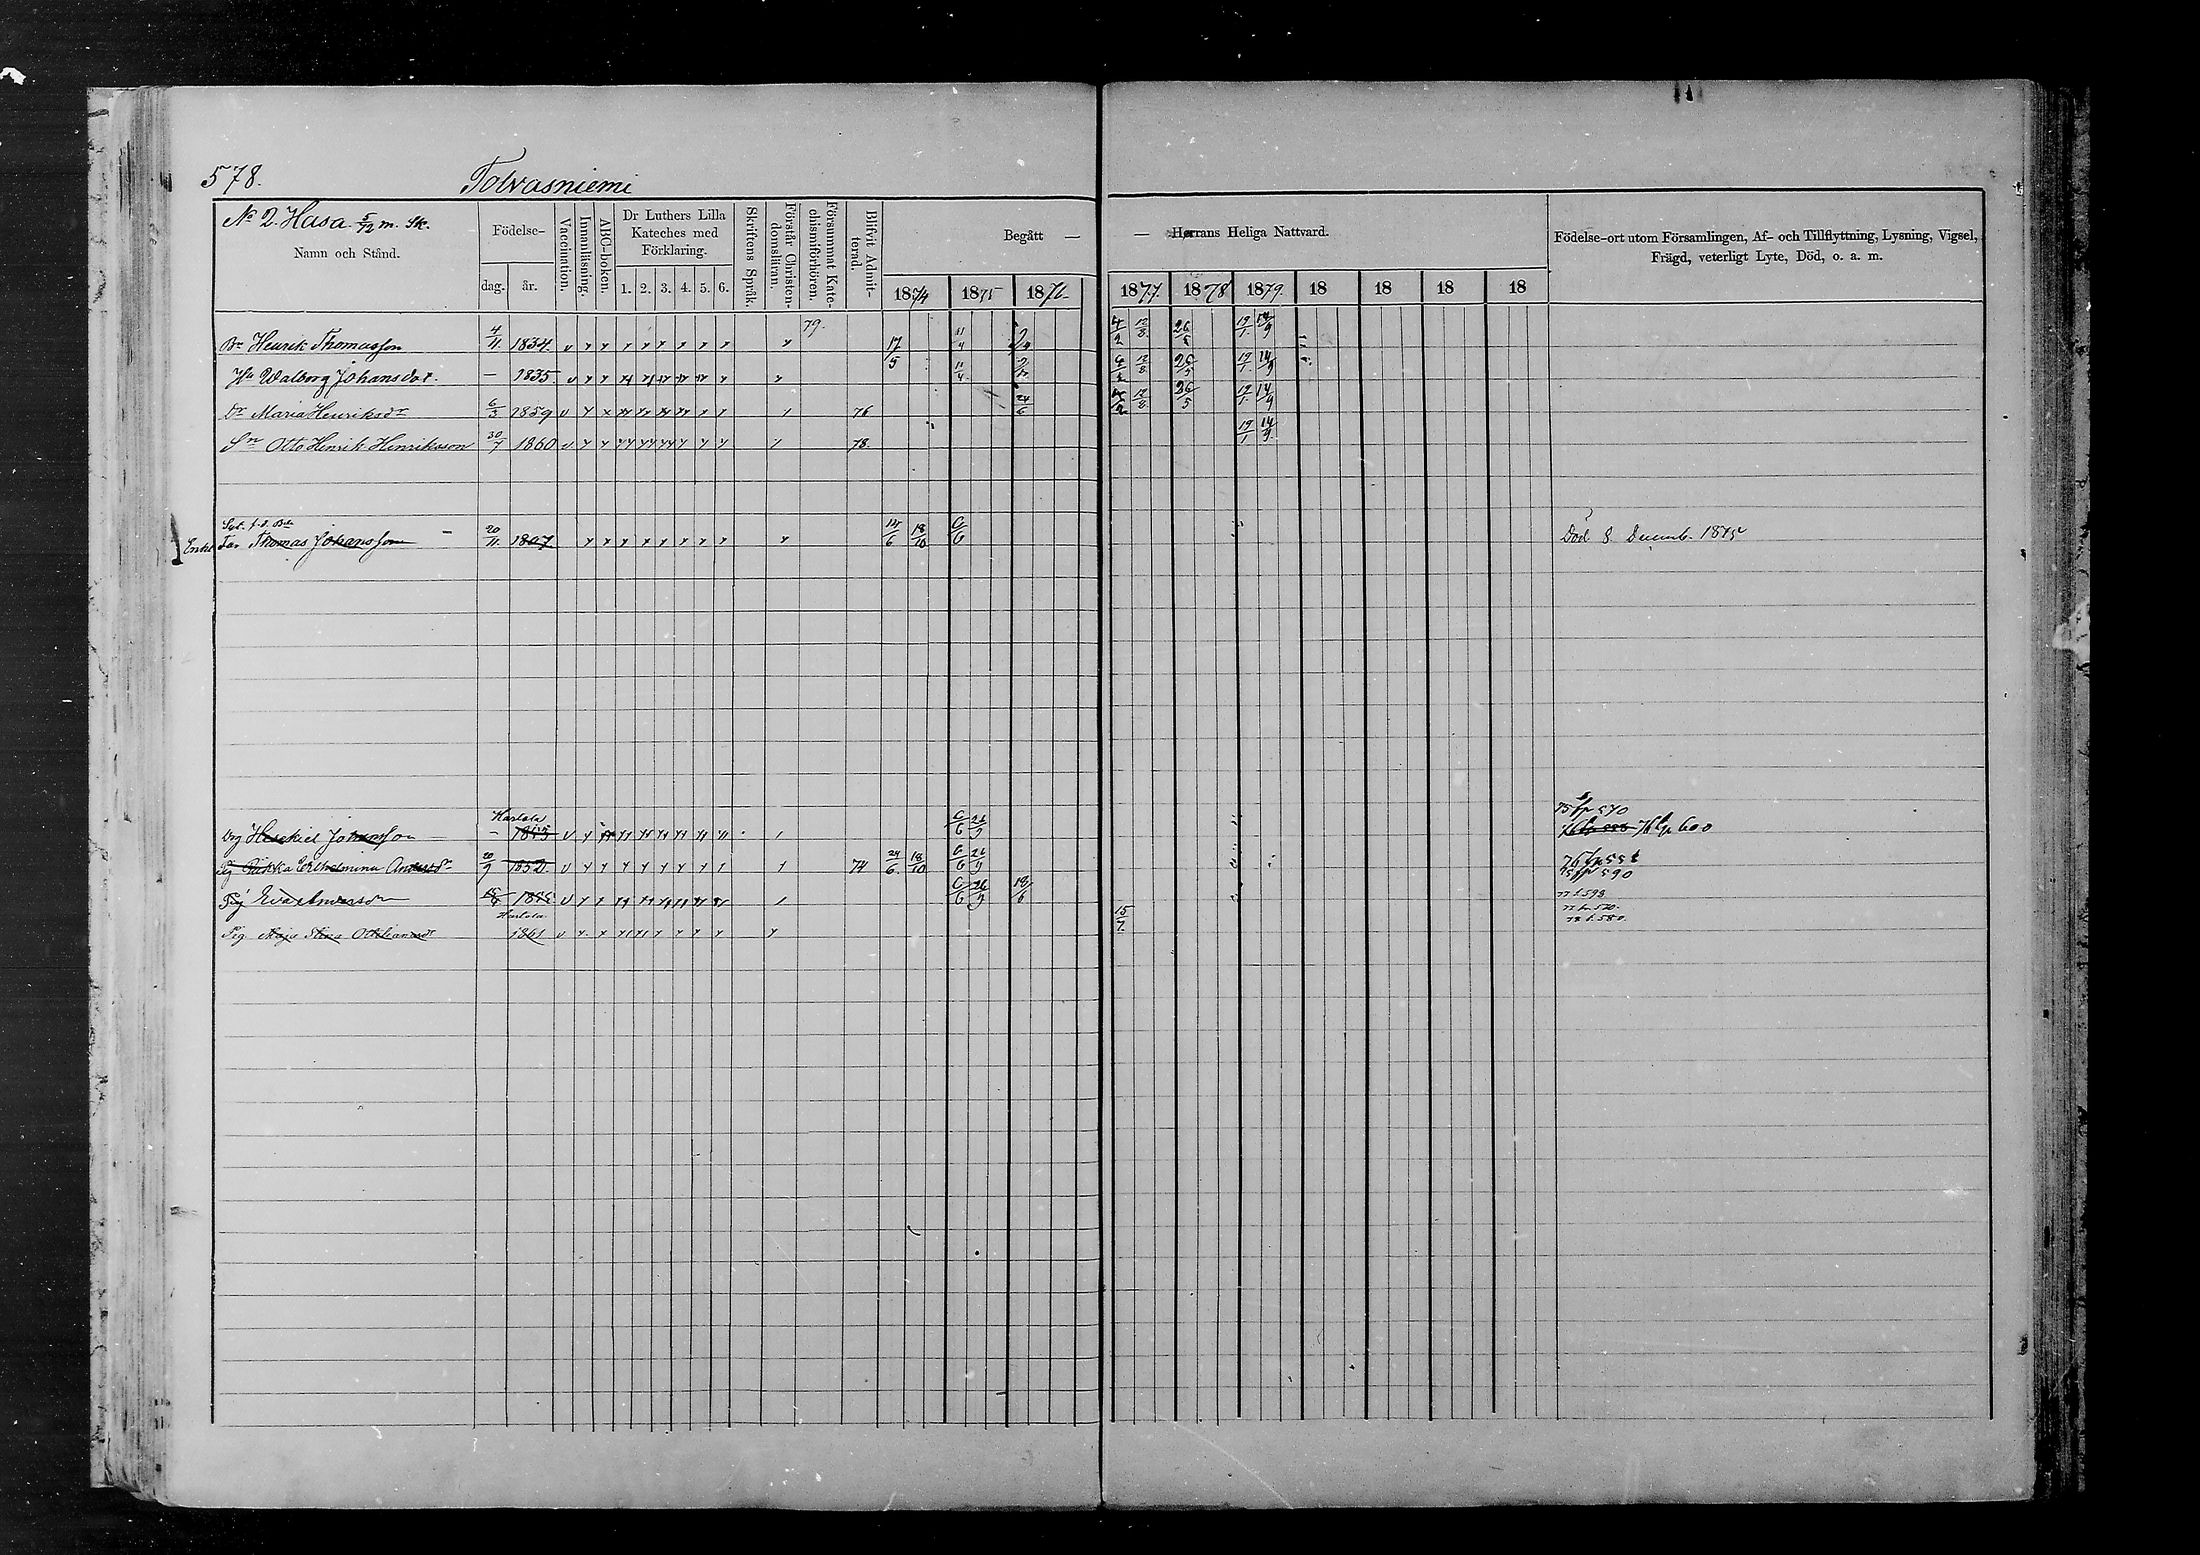 578. Tolvasniemi
No 2. Hasa 5/72 m. Sk.
Namn och Stånd.
Födelse-
dag. år.
Vaccination.
Innanläsning.
ABC-boken.
Dr Luthers Lilla Kateches med Förklaring.
1. 2. 3. 4. 5. 6.
Skriftens Språk.
Förstår Christendomsläran.
Försummat Katechismiförhören.
Blifvit Admitterad.
Begått — — Herrans Heliga Nattvard.
1874 1875 1876 1877. 1878 1879. 18 18 18 18
Födelse-ort utom Församlingen, Af- och Tillflyttning, Lysning, Vigsel,
Frägd, veterligt Lyte, Död, o. a. m.
Bn Henrik Thomasson 4/11 1834. 79. 17/5 11/4 4/2 12/8 26/5 19/1 14/9
Hu Walborg Johansdor. — 1835 11/4 4/2 12/8 26/5 19/1 14/9
Dr Maria Henriksdr 6/3 1859 76 24/6 4/2 12/8 26/5 19/1 14/9
Sn Otto Henrik Henriksson 30/7 1860 78. 19/1 14/9
Enkl Far Thomas Johansson 20/11 1807 14/6 18/10 6/6 Död 8 Decemb. 1875
Karlola
75 fp 570
Drg Hesekiel Johansson — 1855 6/6 26/9 76 fp 600
Pig Wilhelmina Andersdr 20/9 1858. 74 24/6. 18/10 6/6 26/9
75 fp 590
Pig Eva Andersdr 6/6 26/9 18/6 77 f. 593
Harlola
77 fr. 570.
Pig. Maja Stina 1861 15/7 78 f. 580.